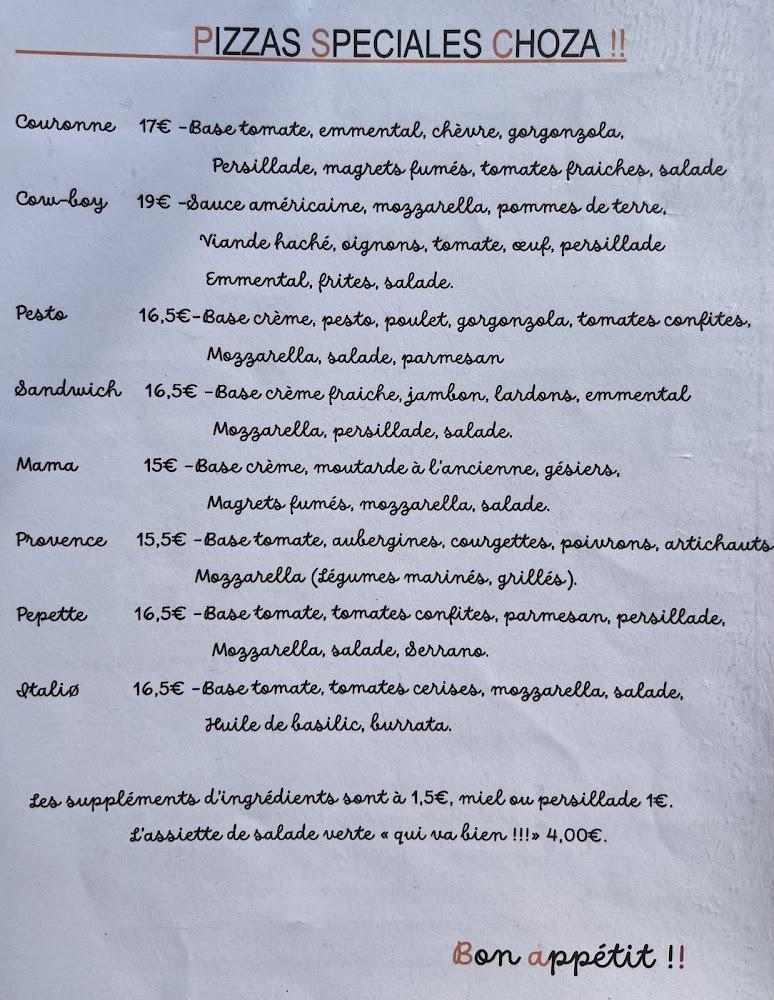 PIZZAS SPECIALES CHOZA !!
Couronne 17€ -Base tomate, emmental, chèvre, gorgonzola,
Persillade, magrets fumés, tomates fraiches, salade
Cow-boy 19€ -Sauce américaine, mozzarella, pommes de terre,
Viande haché, oignons, tomate, œuf, persillade
Emmental, frites, salade.
Pesto 16,5€-Base crème, pesto, poulet, gorgonzola, tomates confites,
Mozzarella, salade, parmesan
Sandwich 16,5€ -Base crème fraiche, jambon, lardons, emmental
Mozzarella, persillade, salade.
Mama 15€ -Base crème, moutarde à l'ancienne, gésiers,
Magrets fumés, mozzarella, salade.
Provence 15,5€ -Base tomate, aubergines, courgettes, poivrons, artichauts
Mozzarella (Légumes marinés, grillés).
Pepette 16,5€ -Base tomate, tomates confites, parmesan, persillade,
Mozzarella, salade, Serrano.
Italiø 16,5€ -Base tomate, tomates cerises, mozzarella, salade,
Huile de basilic, burrata.
Les suppléments d'ingrédients sont à 1,5€, miel ou persillade 1€.
L'assiette de salade verte « qui va bien !!!» 4,00€.
Bon appétit !!